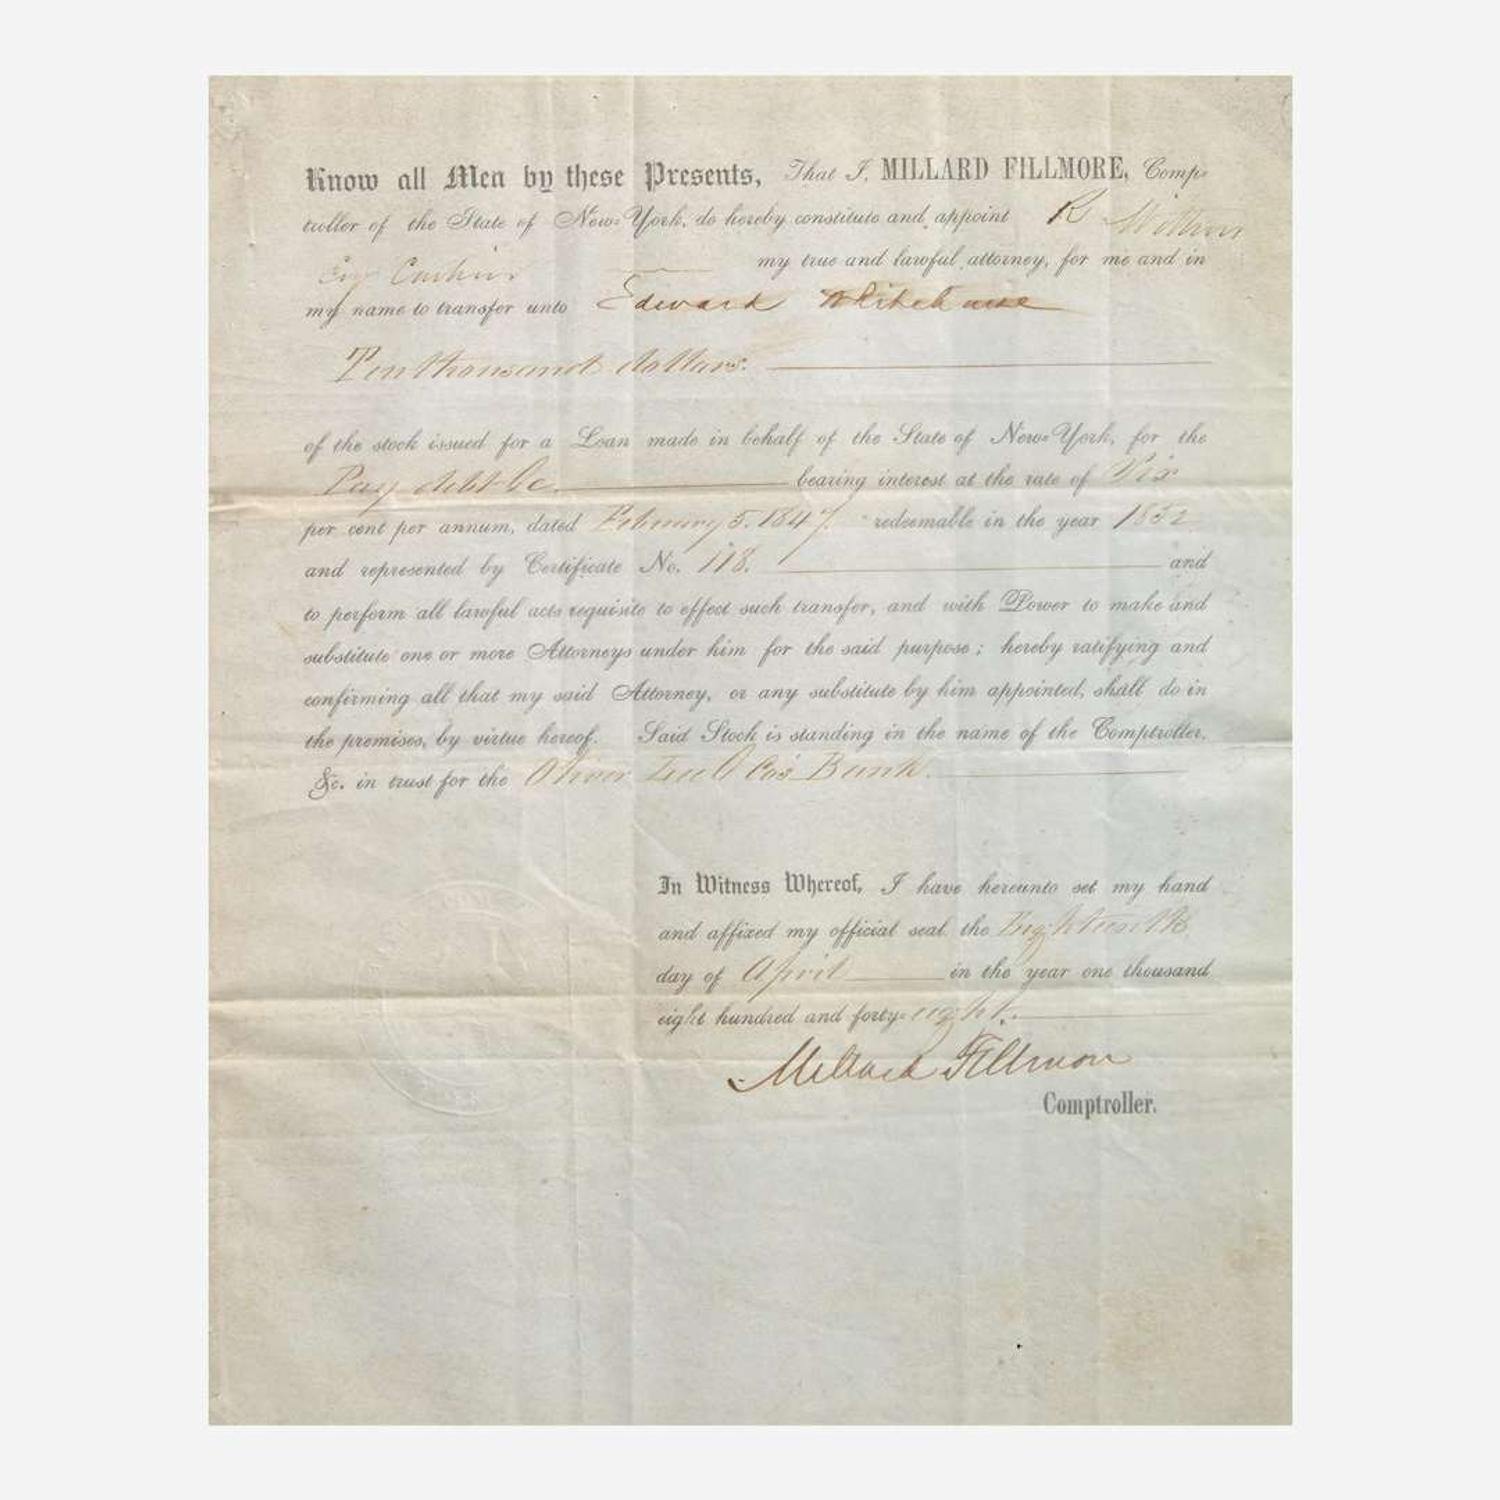 Know all Men by these Presents, That I, MILLARD FILLMORE, Comp-
troller of the State of New-York, do hereby constitute and appoint R
Esq Cashier my true and lawful attorney, for me and in
my name to transfer unto Edward Whitehouse
Ten thousand dollars.
of the stock issued for a Loan made in behalf of the State of New-York, for the
Pay debt &c. bearing interest at the rate of Six
per cent per annum, dated February 5. 1847. redeemable in the year 1852
and represented by Certificate No. 118. and
to perform all lawful acts requisite to effect such transfer, and with Power to make and
substitute one or more Attorneys under him for the said purpose; hereby ratifying and
confirming all that my said Attorney, or any substitute by him appointed, shall do in
the premises, by virtue hereof. Said Stock is standing in the name of the Comptroller,
&c. in trust for the Oliver Lee & Co's Bank.
In Witness Whereof, I have hereunto set my hand
and affixed my official seal the Eighteenth
day of April in the year one thousand
eight hundred and forty-eight.
Millard Fillmore
Comptroller.